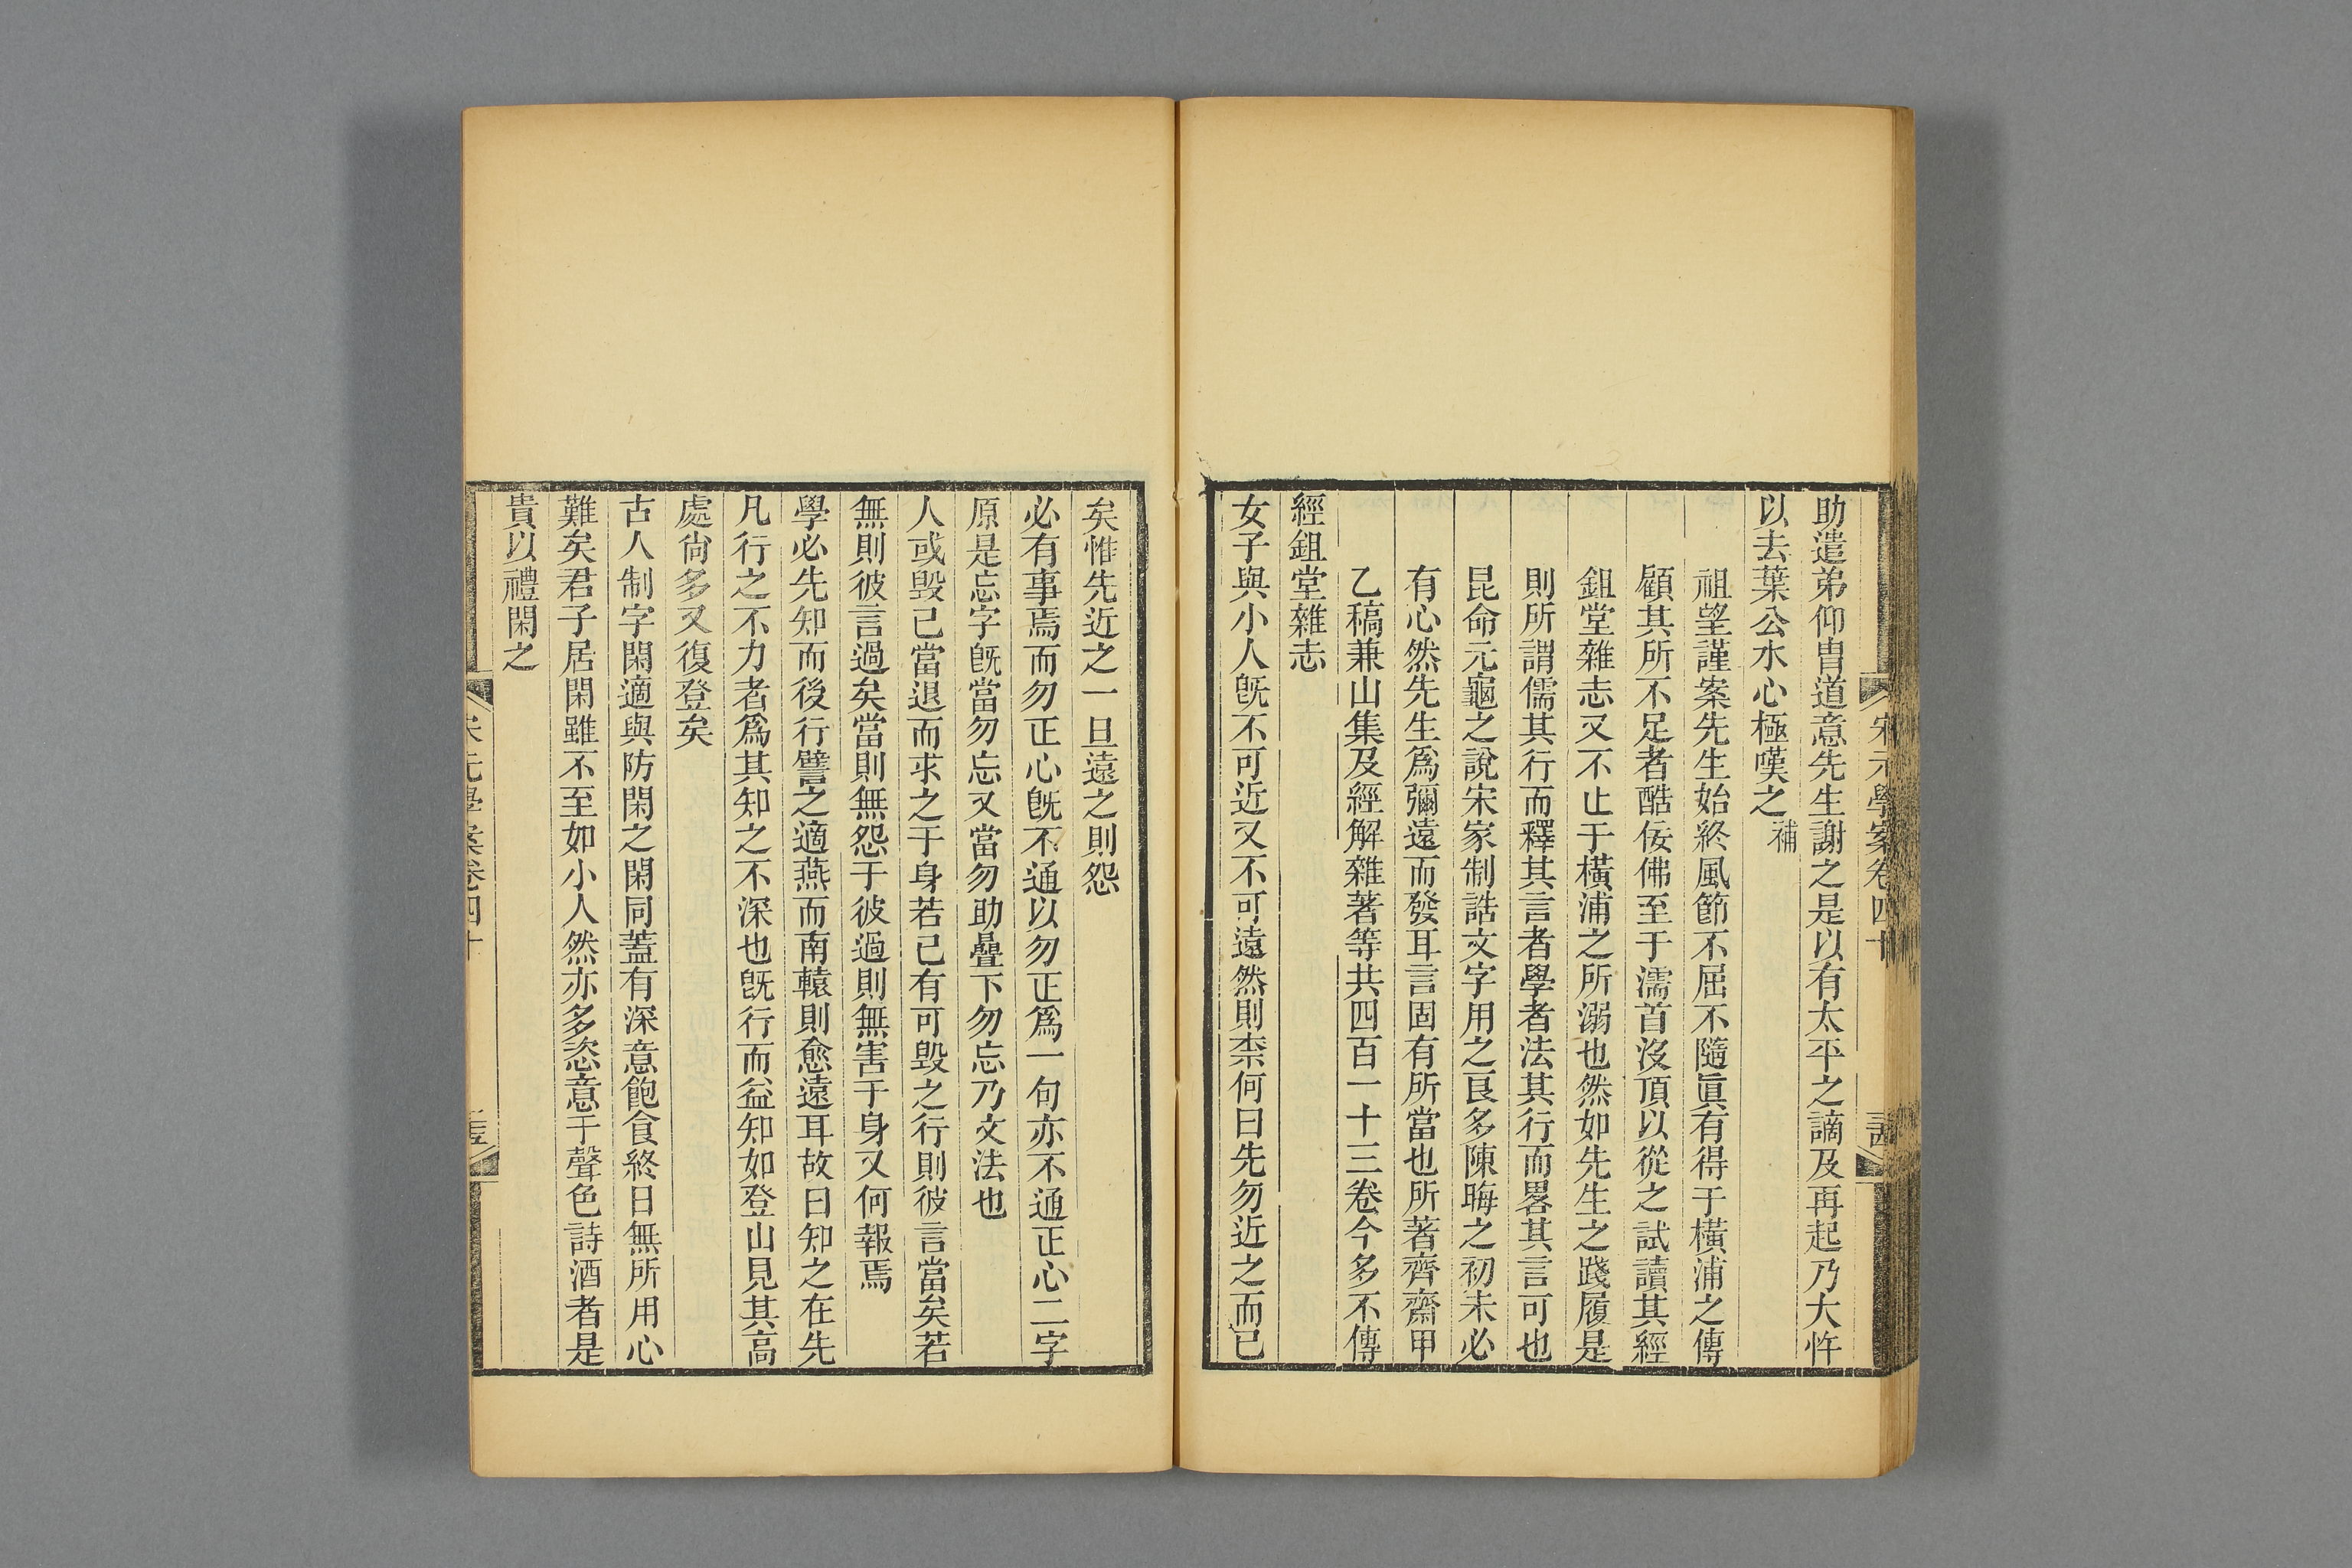 宋元學案卷四十
助遣弟仰胄道意先生謝之是以有太平之謫及再起乃大忤
以去葉公水心極嘆之補
祖望謹案先生始終風節不屈不隨眞有得于橫浦之傳
顧其所不足者酷佞佛至于濡首沒頂以從之試讀其經
鉏堂雜志又不止于橫浦之所溺也然如先生之踐履是
則所謂儒其行而釋其言者學者法其行而畧其言可也
昆命元龜之說宋家制誥文字用之良多陳晦之初未必
有心然先生爲彌遠而發耳言固有所當也所著齊齋甲
乙稿兼山集及經解雜著等共四百一十三卷今多不傳
經鉏堂雜志
女子與小人旣不可近又不可遠然則柰何曰先勿近之而已
矣惟先近之一旦遠之則怨
必有事焉而勿正心旣不通以勿正爲一句亦不通正心二字
原是忘字旣當勿忘又當勿助疊下勿忘乃文法也
人或毁己當退而求之于身若已有可毁之行則彼言當矣若
無則彼言過矣當則無怨于彼過則無害于身又何報焉
學必先知而後行譬之適燕而南轅則愈遠耳故曰知之在先
凡行之不力者爲其知之不深也旣行而益知如登山見其高
處尙多又復登矣
古人制字閑適與防閑之閑同蓋有深意飽食終日無所用心
難矣君子居閑雖不至如小人然亦多恣意于聲色詩酒者是
貴以禮閑之
宋元學案卷四十